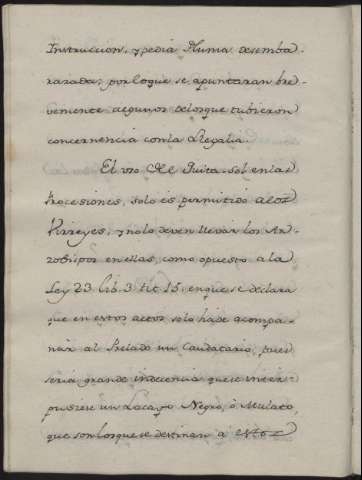 Instruccion, y pedia Pluma desemba-
razada; por loque se apuntaran bre-
vemente algunos delosque tubieron
concernencia conla Regalia.
El uso del Quita-sol enlas
Procesiones, solo es permitido alos
Virreyes, y nolo deven llevar los Ar-
zobispos en ellas, como opuesto ala
Ley 23 Lib. 3 tit 15. enque se declara
que en estos actos solo hade acompa-
ñar al Prelado un Caudatario, pues
seria grande indecencia quese inter-
pusiese un Lacayo Negro, ó Mulato,
que son losque se destinan á estos